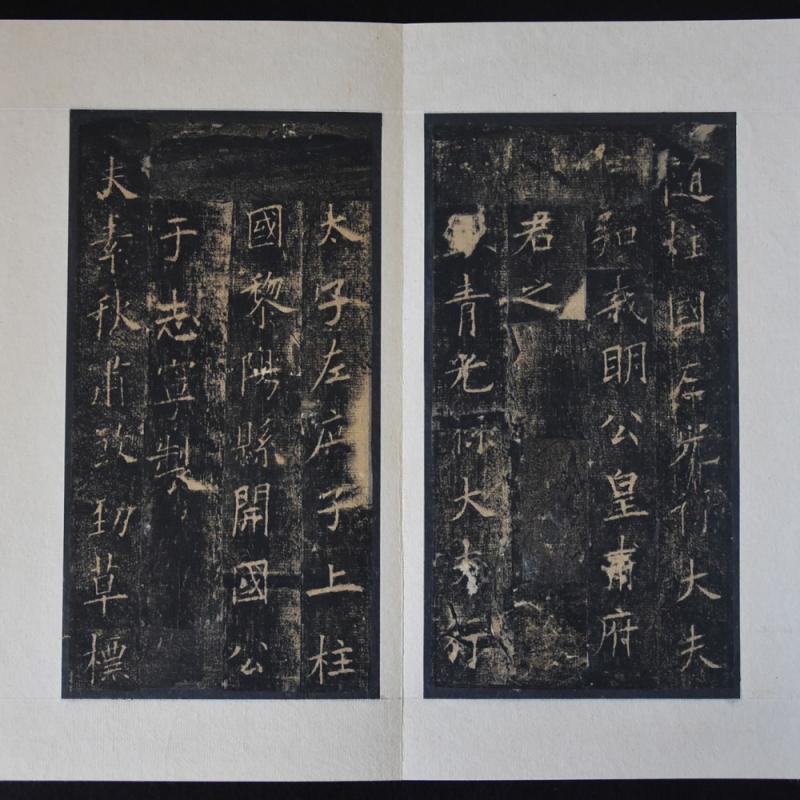 隨柱國左光祿大夫
義明公皇甫府
君之
青光祿大夫行
太子左庶子上柱
國黎陽縣開國公
于志寧製
夫素秋肅煞勁草標